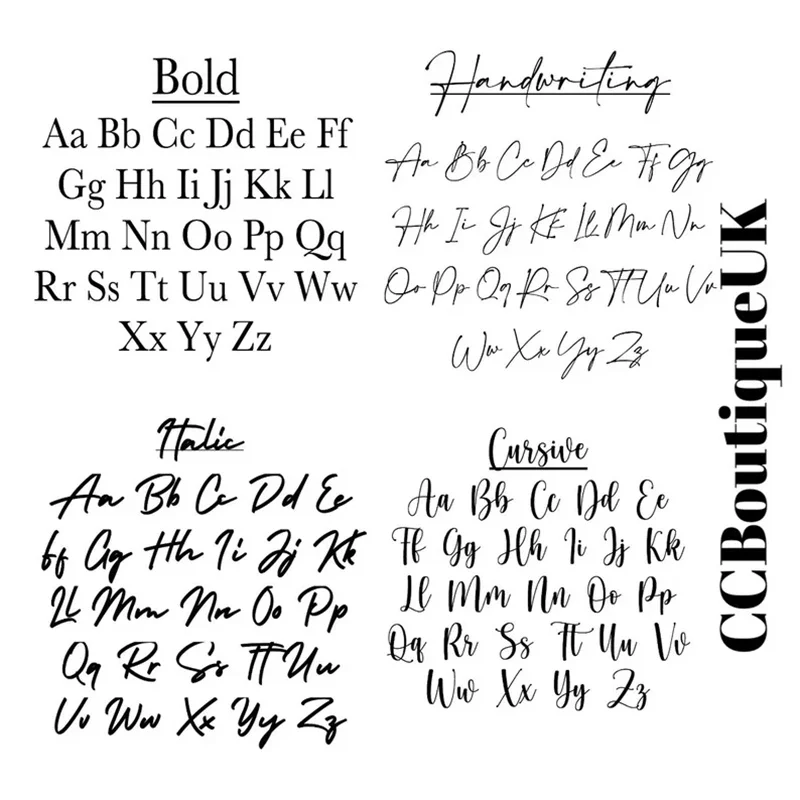 Bold
Aa Bb Cc Dd Ee Ff
Gg Hh Ii Jj Kk Ll
Mm Nn Oo Pp Qq
Rr Ss Tt Uu Vv Ww
Xx Yy Zz
Handwriting
Aa Bb Cc Dd Ee Ff Gg
Hh Ii Jj Kk Ll Mm Nn
Oo Pp Qq Rr Ss Tt Uu Vv
Ww Xx Yy Zz
Italic
Aa Bb Cc Dd Ee
ff Gg Hh Ii Jj Kk
Ll Mm Nn Oo Pp
Qq Rr Ss Tt Uu
Vv Ww Xx Yy Zz
Cursive
Aa Bb Cc Dd Ee
Ff Gg Hh Ii Jj Kk
Ll Mm Nn Oo Pp
Qq Rr Ss Tt Uu Vv
Ww Xx Yy Zz
CCBoutiqueUK